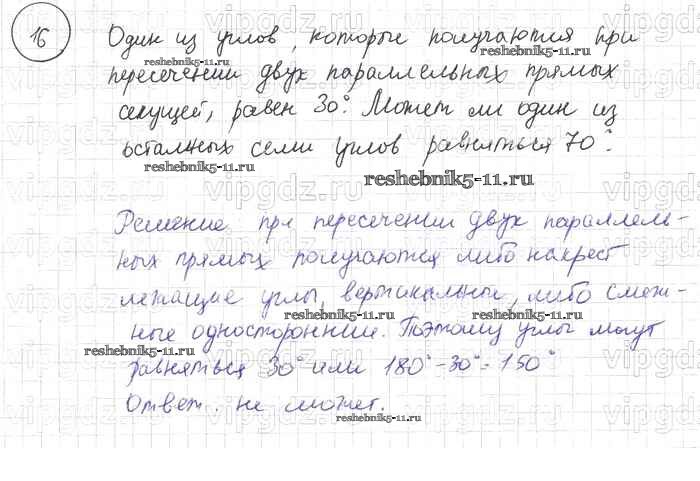 16
Один из углов, которые получаются при
пересечении двух параллельных прямых
секущей, равен 30°. Может ли один из
остальных семи углов равняться 70°.
Решение при пересечении двух параллель-
ных прямых получаются либо накрест
лежащие углы, вертикальные, либо смеж-
ные односторонние. Поэтому углы могут
равняться 30° или 180° - 30° = 150°
Ответ. не может.